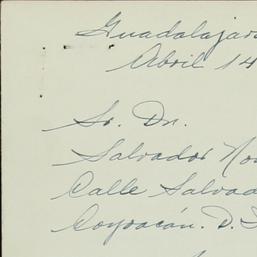 Guadalajara
Abril 14
Sr. Dr.
Salvador
Calle Salvad
Coyoacán. D.